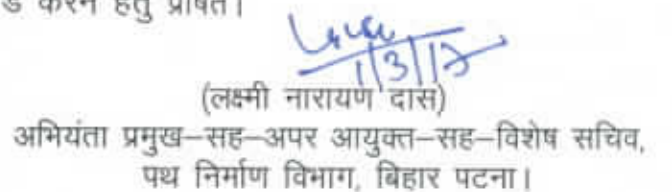 ड करने हेतु प्रेषित।
1/3/17
(लक्ष्मी नारायण दास)
अभियंता प्रमुख–सह–अपर आयुक्त–सह–विशेष सचिव,
पथ निर्माण विभाग, बिहार पटना।